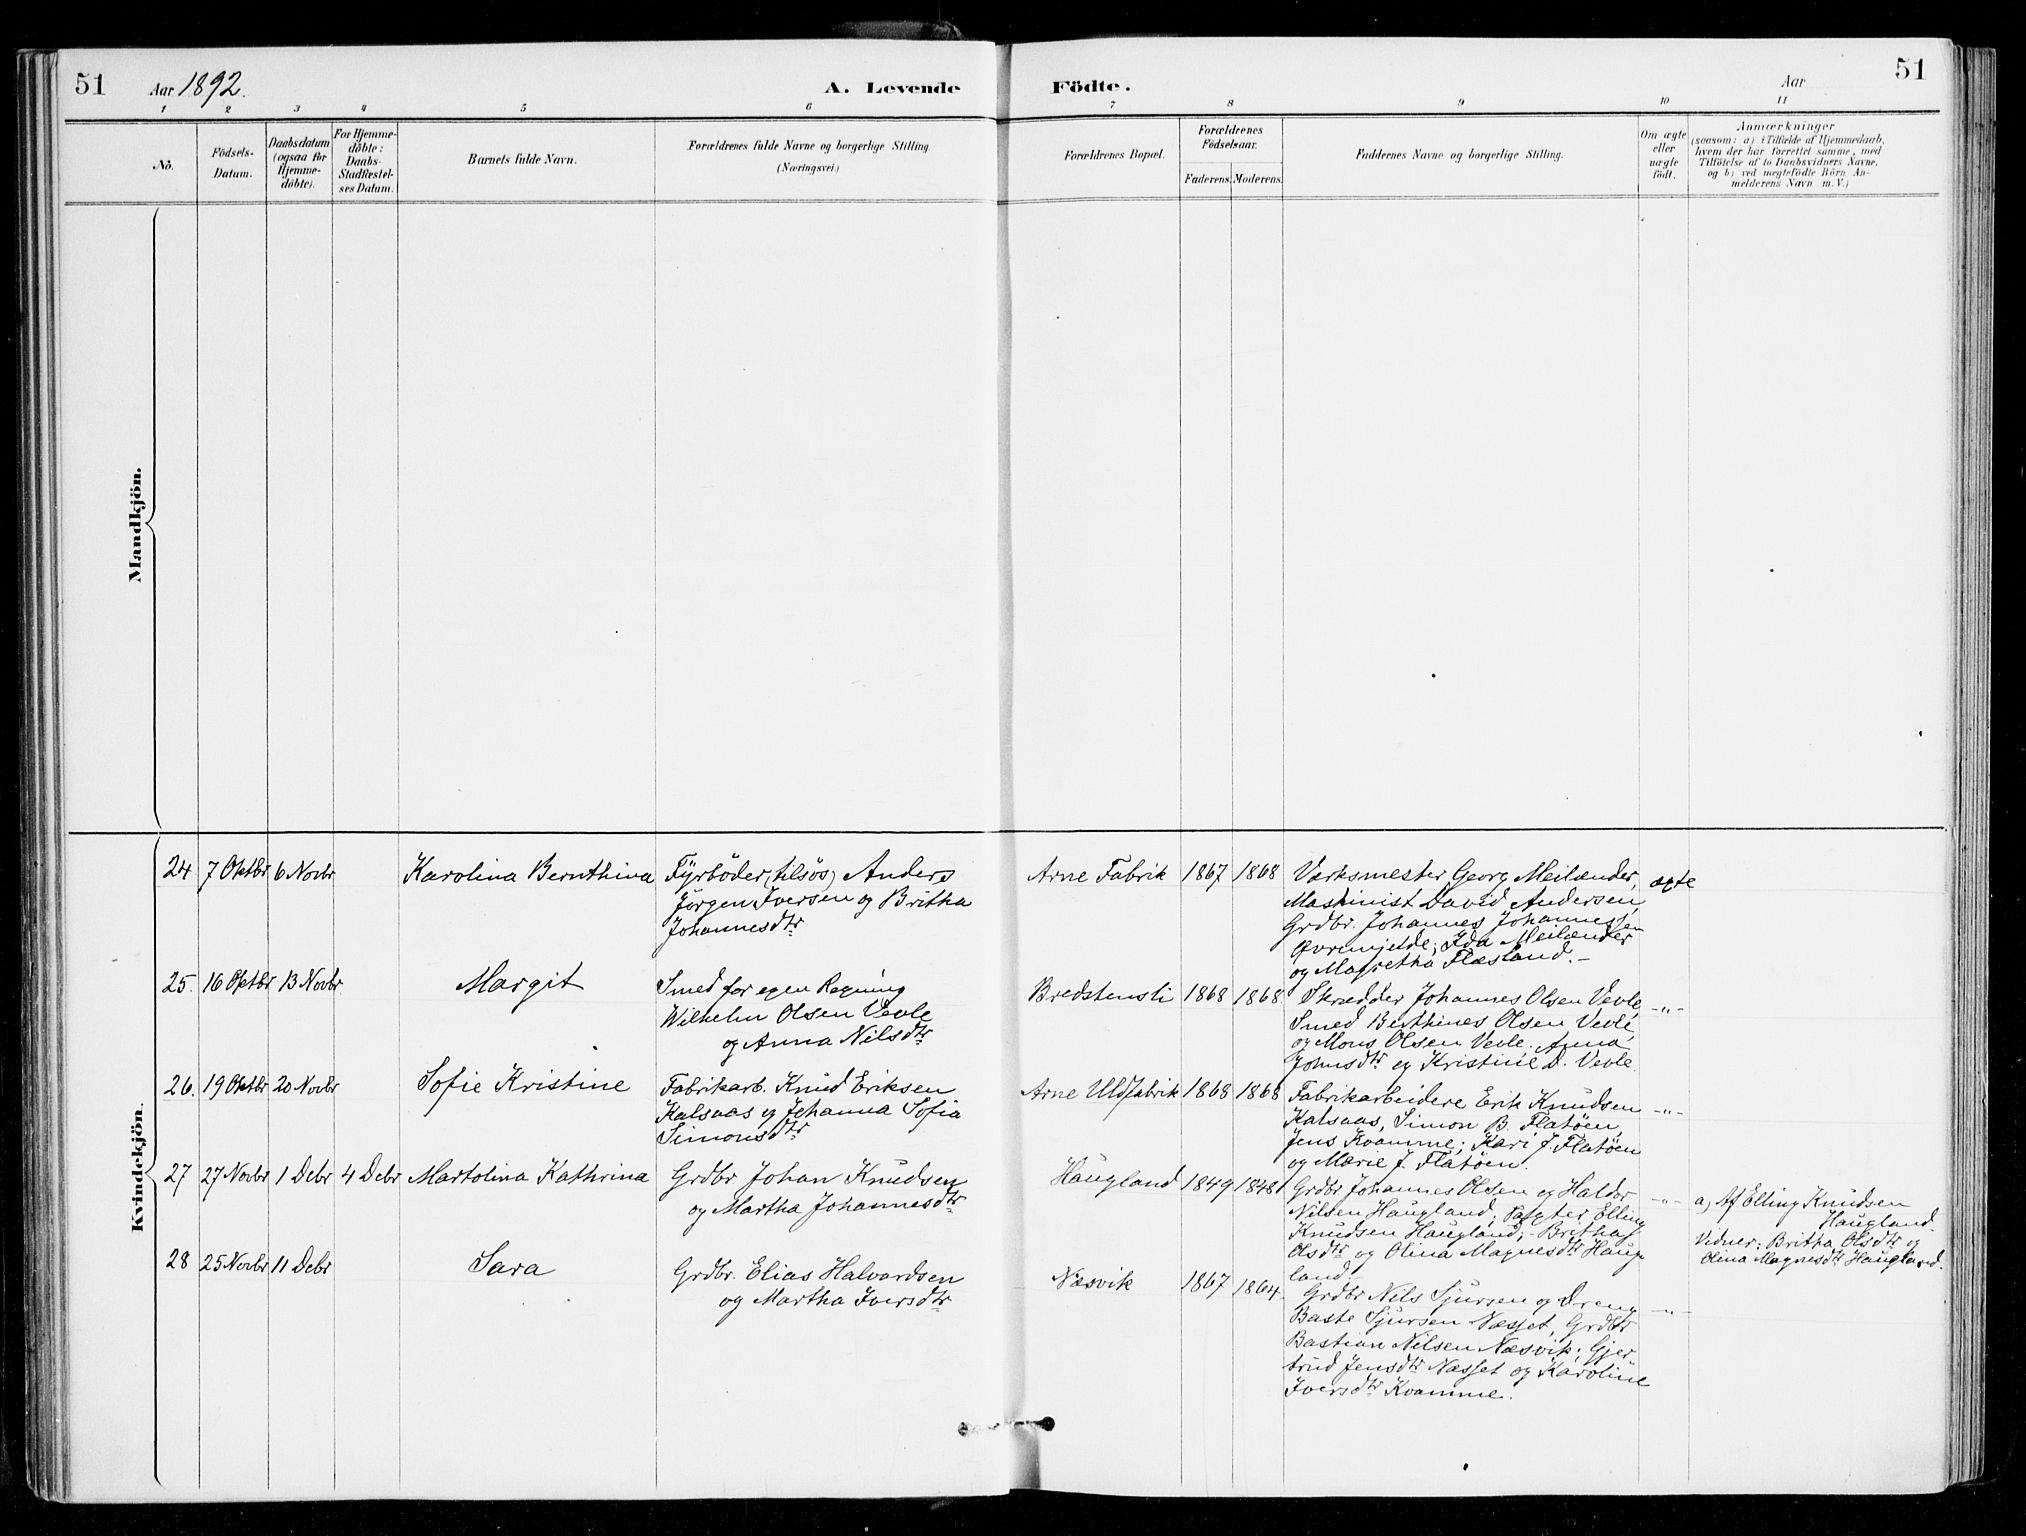 51
Aar 1892.
A. Levende
Födte.
Aar
51
1 2 3 4 5 6 7 8 9 10 11
No.
Födsels-
Datum.
Daabsdatum
(ogsaa for
Hjemme-
döbte).
For Hjemme-
döbte:
Daabs-
Stadfæstel-
ses Datum.
Barnets fulde Navn.
Forældrenes fulde Navne og borgerlige Stilling.
(Næringsvei.)
Forældrenes Bopæl.
Forældrenes
Födselsaar.
Faderens. Moderens.
Faddernes Navne og borgerlige Stilling.
Om ægte
eller
uægte
födt.
Anmærkninger
(saasom: a) i Tilfælde af Hjemmedaab,
hvem der har forrettet samme, med
Tilföielse af to Daabsvidners Navne,
og b) ved uægtefödte Börn An-
melderens Navn m. V.)
Mandkjön.
Kvindekjön.
24 7 Oktbr 6 Novbr Karolina Bernthina
Fyrböder (tilsös) Anders
Jörgen Iversen og Britha
Johannesdtr
Arne Fabrik 1867 1868
Værksmester Georg Meilænder,
Maskinist David Andersen,
Grdbr. Johannes Johannessen
Övremjelde; Ida Meilænder
og Magretha Flæsland.-
ægte
25. 16 Oktbr 13 Novbr. Margit
Smed for egen Regning
Wilhelm Olsen Vevle
og Anna Nilsdtr
Bredstensli 1868 1868
Skrædder Johannes Olsen Vevle,
Smed Berthines Olsen Vevle,
og Mons Olsen Vevle. Anna
Johnsdtr og Kristine D. Vevle.
-"-
26. 19 Oktbr 20 Novbr Sofie Kristine
Fabrikarb. Knud Eriksen
Kalsaas og Johanna Sofia
Simonsdtr
Arne Uldfabrik 1868 1868
Fabrikarbeidere Erik Knudsen
Kalsaas, Simon B. Flatöen,
Jens Kvamme; Kari J. Flatöen
og Marie J. Flatöen.
-"-
27 27 Novbr 1 Debr 4 Debr Martolina Kathrina
Grdbr Johan Knudsen
og Martha Johannesdtr
Haugland 1849 1848
Grdbr Johannes Olsen og Haldor
Nilsen Haugland; Elling
Knudsen Haugland; - Britha
Olsdtr og Olina Magnesdtr Haug-
land.-
-"-
a, Af Elling Knudsen
Haugland
Vidner: Britha Olsdtr og
Olina Magnesdtr Haugland.
28 25 Novbr 11 Debr Sara
Grdbr. Elias Halvardsen
og Martha Iversdtr
Næsvik 1867 1864
Grdbr Nils Sjursen og Dreng
Baste Sjursen Næsset, Grdbr
Bastian Nilsen Næsvik; Gjer-
trud Jensdtr Næsset og Karoline
Iversdtr Kvamme.
-"-